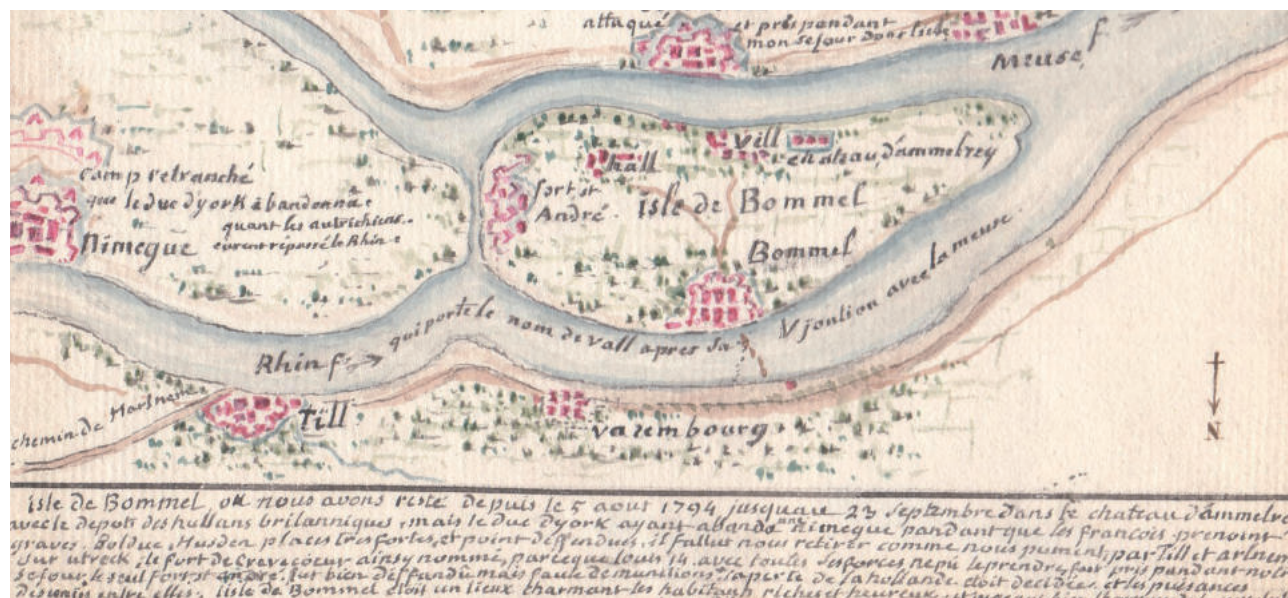 attaqué et pris pendant
mon sejour
Meuse f
Vill
hall
camp retranché
que le duc dyork àbandonna
quant les autrichiens
eurent repassé le Rhin
fort st
André
isle de Bommel
Bommel
nimegue
Rhin f qui porte le nom de vall apres sa
jontion avec la meuse
chemin de
Till
varembourg
N
isle de Bommel, ou nous avons resté depuis le 5 aout 1794 jusquau 23 septembre dans le chateau d'ammelrey
avec le depots des hullans britanniques, mais le duc dyork ayant abandonné nimegue pandant que les francois prenoint
graves, Bolduc, Husden places tres fortes, et point deffendues, il fallut nous retirer comme nous pument, par Till et
sur utreck, le fort de Crevecoeur ainsy nommé, parceque louis 14 avec toutes ses forces ne pu le prendre, fut pris pendant
sejour, le seul fort st andré fut bien deffandu mais faute de munitions, la perte de la hollande etoit decidée, et les puissances
desunies entre elles. lisle de Bommel etoit un lieux charmant les habitans riches et heureux